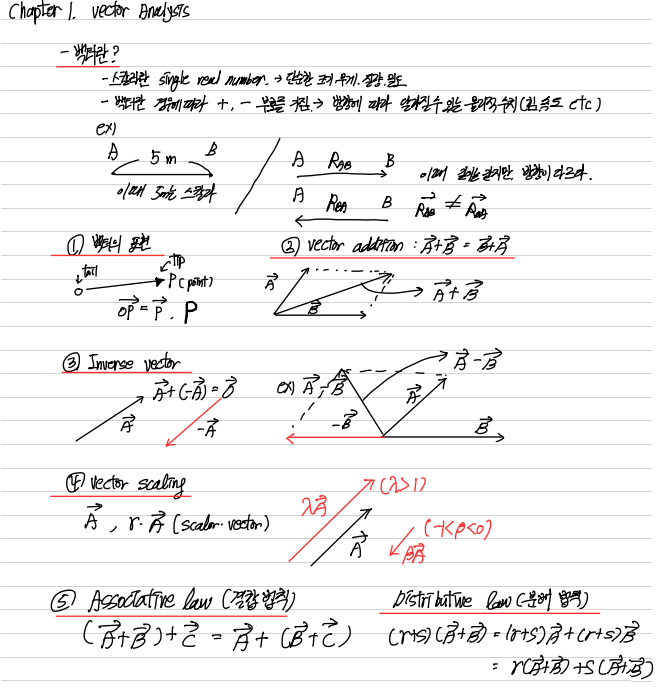 Chapter 1. Vector Analysis
- 벡터란?
- 스칼라란 single real number. → 단순한 크기 무게. 질량 밀도
- 벡터란 경우에 따라 +, - 부호를 가짐. → 방향에 따라 달라질 수 있는 물리적 수치 (힘, 속도 etc)
ex)
A 5m B
이때 5m는 스칼라
A R_AB B
A R_BA B
이때 길이는 같지만 방향이 다르다.
R⃗_AB ≠ R⃗_BA
① 벡터의 표현
tail tip
P (point)
O⃗P⃗ = P⃗ . P
② Vector addition : A⃗+B⃗ = B⃗+A⃗
A⃗
B⃗
A⃗ + B⃗
③ Inverse vector
A⃗+(-A⃗) = 0⃗
A⃗
-A⃗
ex) A⃗ - B⃗
A⃗ - B⃗
A⃗
-B⃗
B⃗
④ Vector scaling
A⃗ , r · A⃗ (scalar · vector)
λA⃗ (λ>1)
A⃗
(-1<β<0)
βA⃗
⑤ Associative law (결합 법칙)
(A⃗+B⃗) + C⃗ = A⃗ + (B⃗+C⃗)
Distributive law (분배 법칙)
(r+s) (A⃗+B⃗) = (r+s) A⃗ + (r+s) B⃗
= r(A⃗+B⃗) + s(A⃗+B⃗)